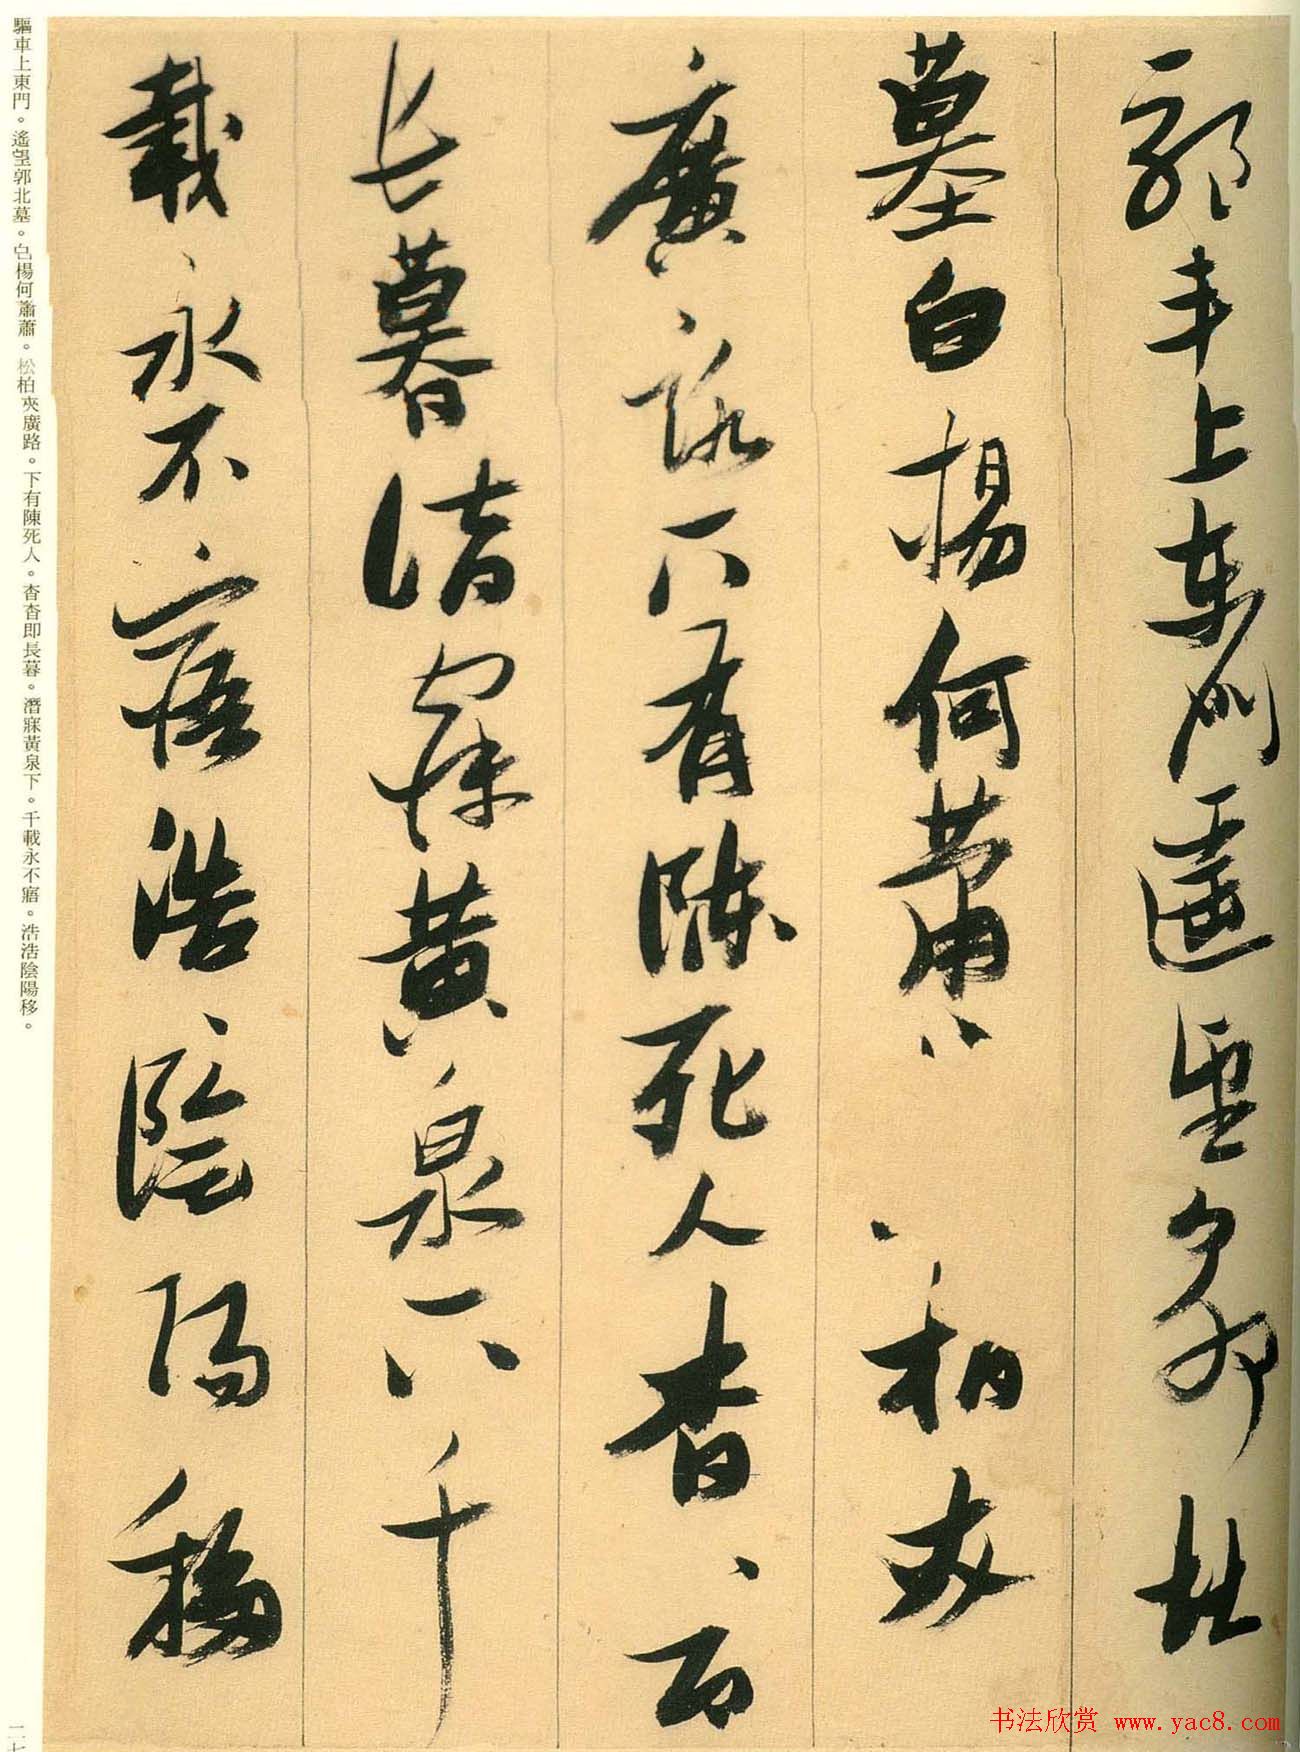 驅車上東門遙望郭北
墓白楊何蕭〻柏夾
廣路下有陳死人杳〻即
長暮潛寐黃泉下千
載永不寤浩〻陰陽移
驅車上東門。遙望郭北墓。白楊何蕭蕭。松柏夾廣路。下有陳死人。杳杳即長暮。潛寐黃泉下。千載永不寤。浩浩陰陽移。
二七
书法欣赏 www.yac8.com